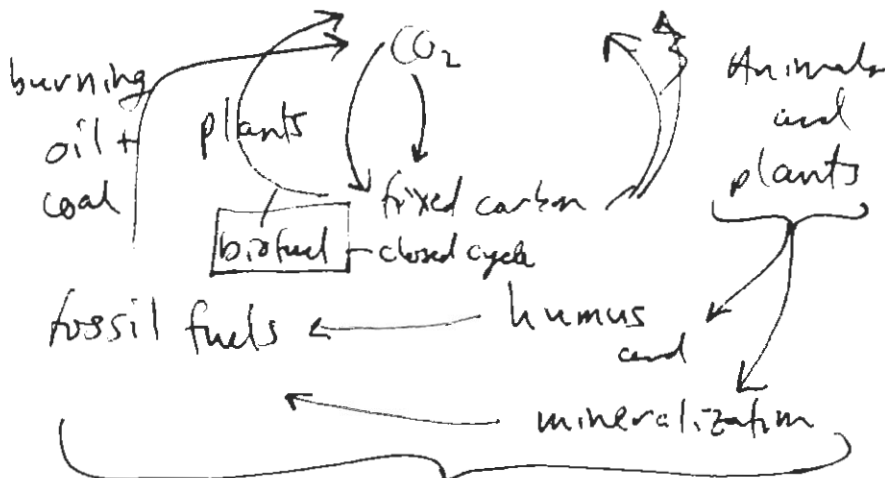 CO₂
burning
oil +
coal
plants
Animals
and
plants
fixed carbon
biofuel – closed cycle
fossil fuels
humus
and
mineralization